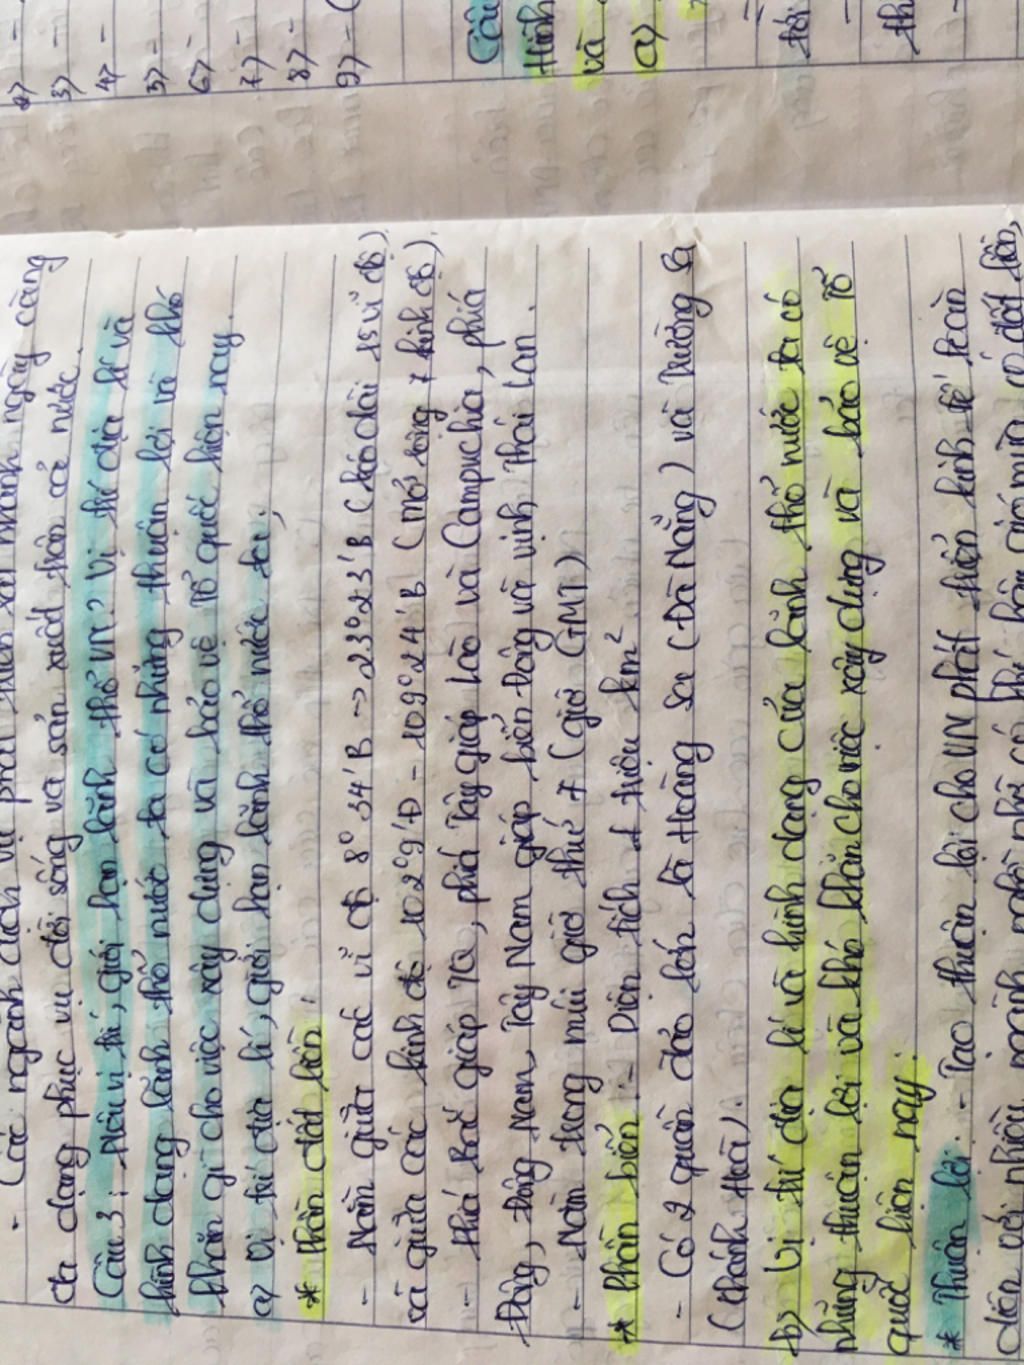 - Các ngành dịch vụ phát triển
đa dạng phục vụ đời sống và sản xuất toàn cả nước.
Câu 3: Nêu vị trí, giới hạn lãnh thổ VN? Vị trí địa lí và
hình dạng lãnh thổ nước ta có những thuận lợi và khó
khăn gì cho việc xây dựng và bảo vệ Tổ quốc hiện nay.
a) Vị trí địa lí, giới hạn lãnh thổ nước ta.
* Phần đất liền:
- Nằm giữa các vĩ độ 8° 34' B -> 23° 23' B (kéo dài 15 vĩ độ)
và giữa các kinh độ 102° 9' Đ - 109° 24' B (mở rộng 7 kinh độ).
- Phía Bắc giáp TQ, phía Tây giáp Lào và Campuchia, phía
Đông, Đông Nam, Tây Nam giáp biển Đông và vịnh Thái Lan.
- Nằm trong múi giờ thứ 7 (giờ GMT)
* Phần biển: - Diện tích 1 triệu km²
- Có 2 quần đảo lớn là Hoàng Sa (Đà Nẵng) và Trường Sa
(Khánh Hoà).
b) Vị trí địa lí và hình dạng của lãnh thổ nước ta có
những thuận lợi và khó khăn cho việc xây dựng và bảo vệ Tổ
quốc hiện nay.
* Thuận lợi: - Tạo thuận lợi cho VN phát triển kinh tế toàn
diện với nhiều ngành nghề có khí hậu gió mùa, có đất liền,
2) -
3) -
4) -
5) -
6) -
7) -
8) -
9) -
Câu
Hình
và
a)
-
tới
-
th